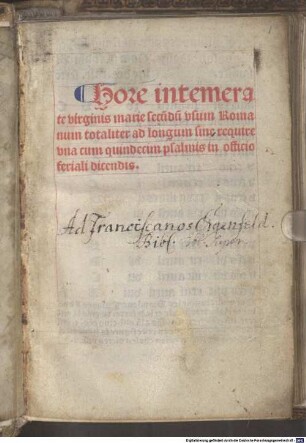 Hore intemera
te virginis marie secūdū vsum Roma
num totaliter ad longum sine require
vna cum quindecim psalmis in officio
feriali dicendis.
Ad Franciscanos
Digitalisierung gefördert durch die Deutsche Forschungsgemeinschaft